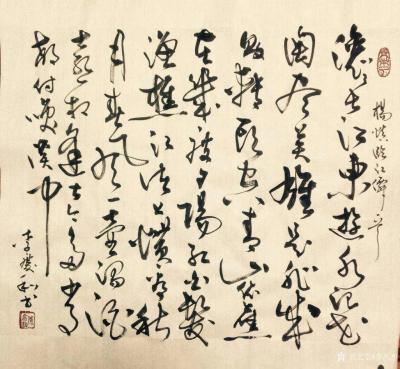 楊慎臨江仙
滚滚長江東逝水浪花
淘尽英雄是非成
敗轉頭空青山依舊
在幾度夕陽紅白髮
漁樵江渚上慣看秋
月春風一壺濁酒
喜相逢古今多少事
都付笑談中
李和书